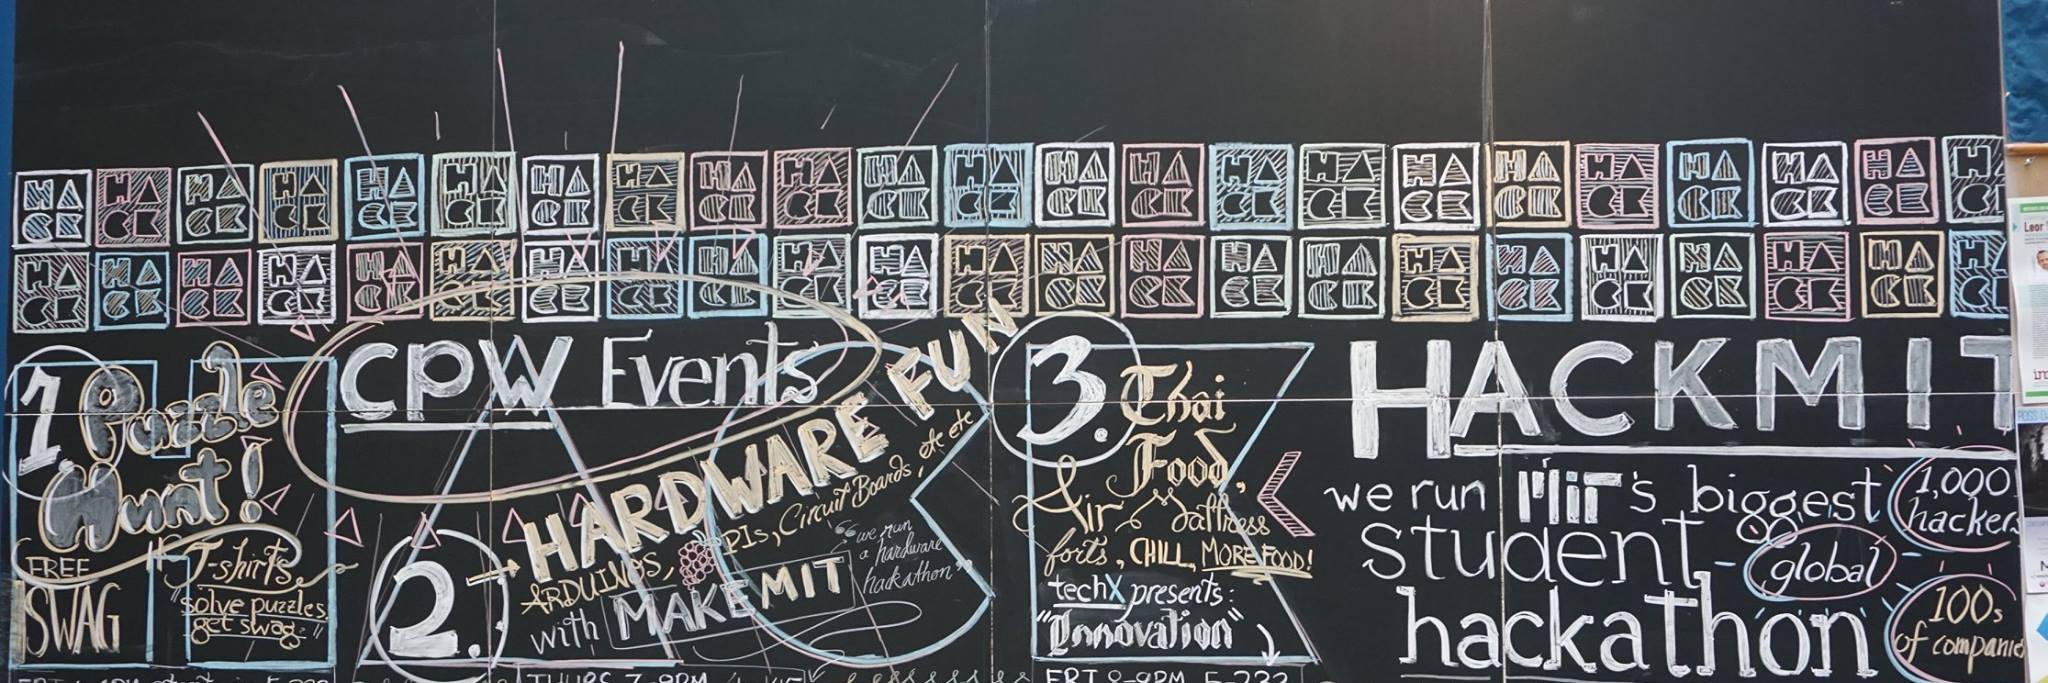 HACK HACK HACK HACK HACK HACK HACK HACK HACK HACK HACK HACK HACK HACK HACK HACK HACK HACK HACK HACK HACK HACK HACK
HACK HACK HACK HACK HACK HACK HACK HACK HACK HACK HACK HACK HACK HACK HACK HACK HACK HACK HACK HACK HACK HACK HACK
CPW Events
1. Puzzle
Hunt!
FREE
SWAG
T-shirts,
"solve puzzles,
get swag."
2. HARDWARE FUN
ARDUINOS, PIs, Circuit Boards, etc etc
with MAKEMIT
"we run
a hardware
hackathon"
THURS 7-9PM
3. Thai
Food,
Air Mattress
forts, CHILL, MORE FOOD!
techX presents:
"Innovation"
FRI 8-9PM
HACKMIT
we run MIT's biggest
student
hackathon
1,000
hackers
global
100s
of companies
Leor